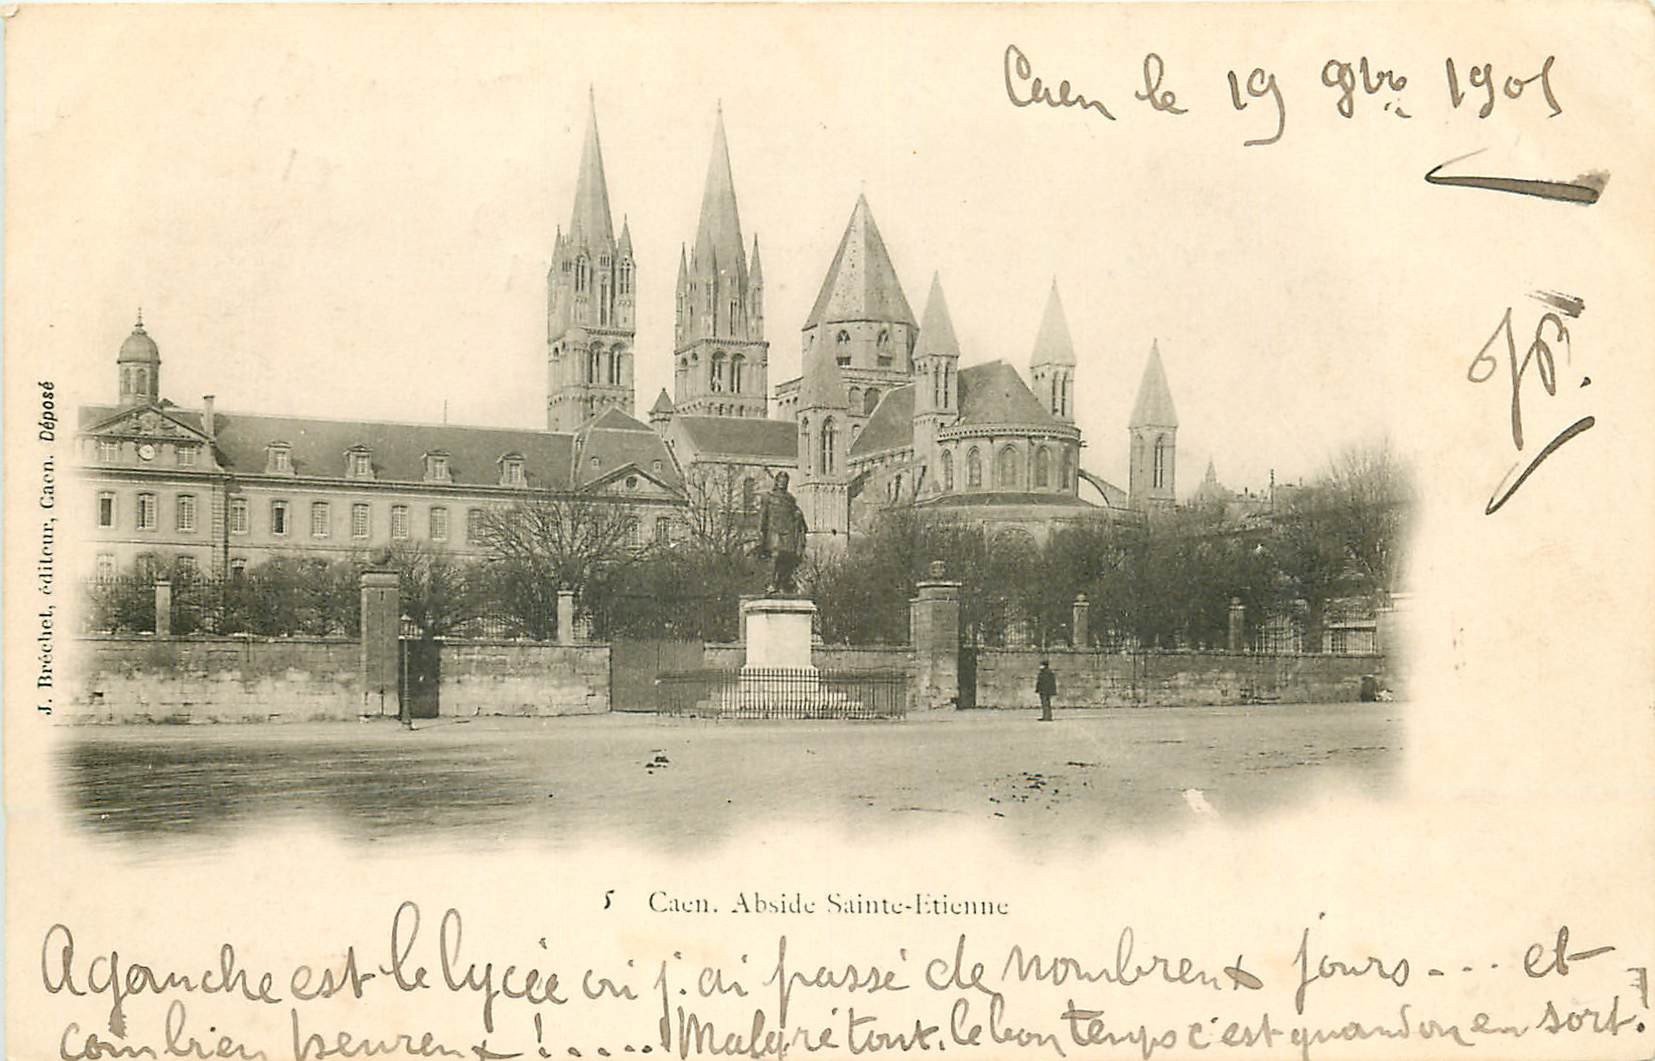 Caen le 19 9bre 1901
JP.
J. Bréchet, éditeur, Caen. Déposé
5 Caen. Abside Sainte-Etienne
A gauche est le lycée où j'ai passé de nombreux jours --- et
combien heureux !..... Malgré tout, le bon temps c'est quand on en sort.